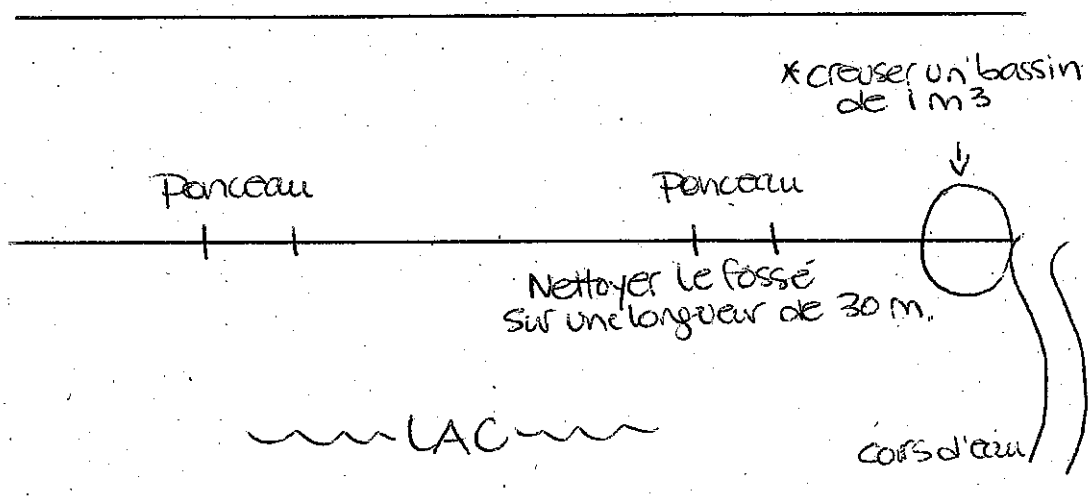 * creuser un bassin
de 1 m3
Ponceau
Ponceau
Nettoyer le fossé
sur une longueur de 30 m.
LAC
cors d'eau